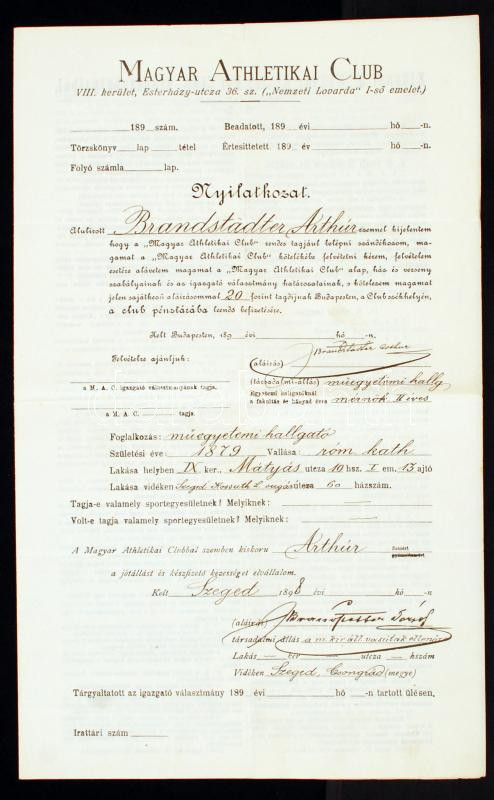 MAGYAR ATHLETIKAI CLUB
VIII. kerület, Esterházy-utcza 36. sz. („Nemzeti Lovarda" I-ső emelet.)
189 szám. Beadatott, 189 évi hó -n.
Törzskönyv lap tétel Értesittetett 189 év hó -n.
Folyó számla lap.
Nyilatkozat.
Alulirott Brandstädter Arthúr ezennel kijelentem
hogy a „Magyar Athletikai Club" rendes tagjául belépni szándékozom, ma-
gamat a „Magyar Athletikai Club" kötelékébe felvétetni kérem, felvételem
esetére alávetem magamat a „Magyar Athletikai Club" alap, ház és verseny
szabályainak és az igazgató választmány határozatainak, s kötelezem magamat
jelen sajátkezű aláirásommal 20 forint tagdijnak Budapesten, a Club székhelyén,
a club pénztárába leendő befizetésére.
Kelt Budapesten, 189 évi hó -n.
Felvételre ajánljuk: (aláirás) Brandstädter Arthur
a M. A. C. igazgató választmányának tagja. (társadalmi állás) műegyetemi hallg
Egyetemi hallgatóknál
a fakultás és hányad éves mérnök II éves
a M. A. C. tagja.
Foglalkozás: műegyetemi hallgató
Születési éve: 1879 Vallása: róm kath
Lakása helyben IX ker., Mátyás utcza 10 hsz. I em. 13 ajtó
Lakása vidéken Szeged Kossuth L. sugár utcza 60 házszám.
Tagja-e valamely sportegyesületnek? Melyiknek:
Volt-e tagja valamely sportegyesületnek? Melyiknek:
A Magyar Athletikai Clubbal szemben kiskoru Arthúr
a jótállást és készfizető kezességet elvállalom.
Kelt Szeged 1898 évi hó -n
(aláirás)
társadalmi állás a m. kir áll. vasutak ellenőr
Lakás — ker — utcza — hszám
Vidéken Szeged, Csongrád (megye)
Tárgyaltatott az igazgató választmány 189 évi hó -n tartott ülésen.
Irattári szám